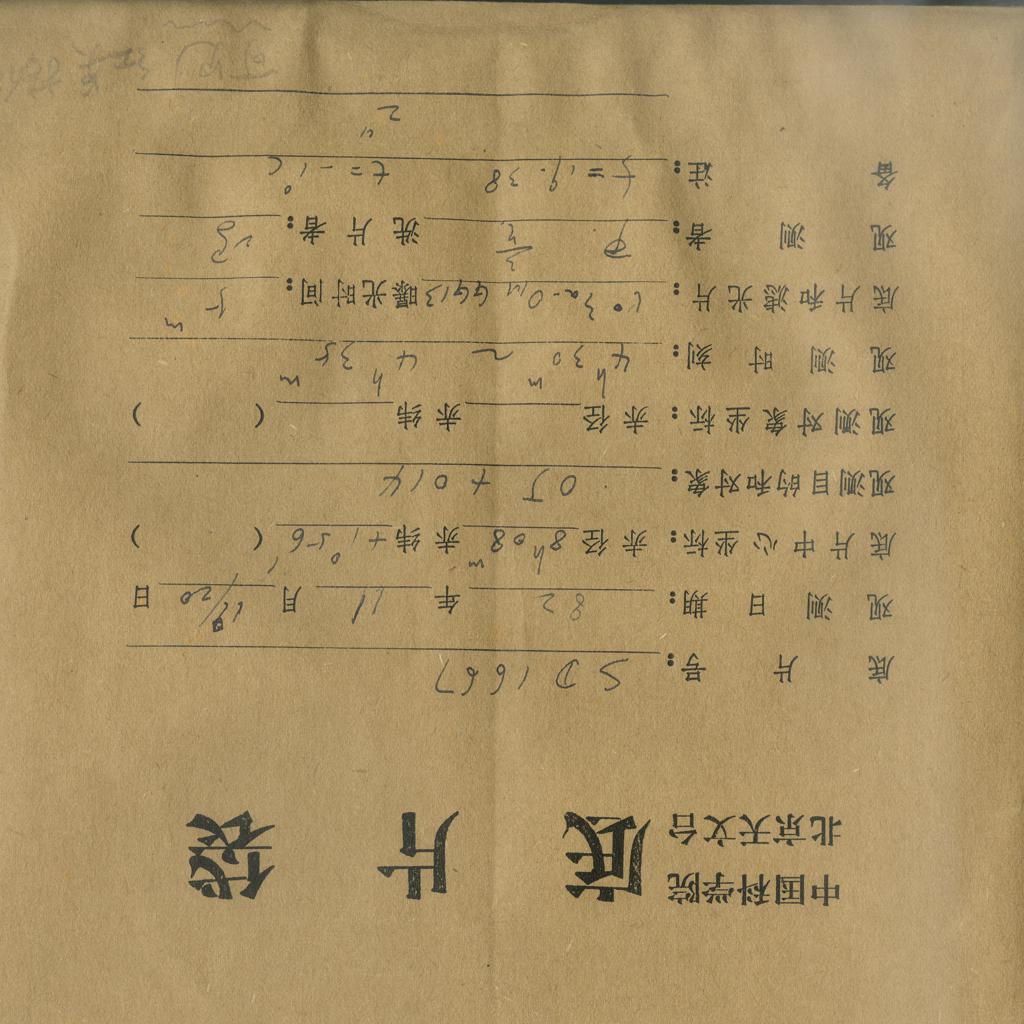 中国科学院
北京天文台
底片袋
底片号: SD1667
观测日期: 82年11月19/20日
底片中心坐标: 赤径8h08m赤纬+1°56′( )
观测目的和对象: OJ+014
观测对象坐标: 赤径 赤纬 ( )
观测时刻: 4h30m~4h35m
底片和滤光片: 103a-O GG13曝光时间: 5m
观测者: 洗片者:
备注: f=19.38 t=-1°C
2"